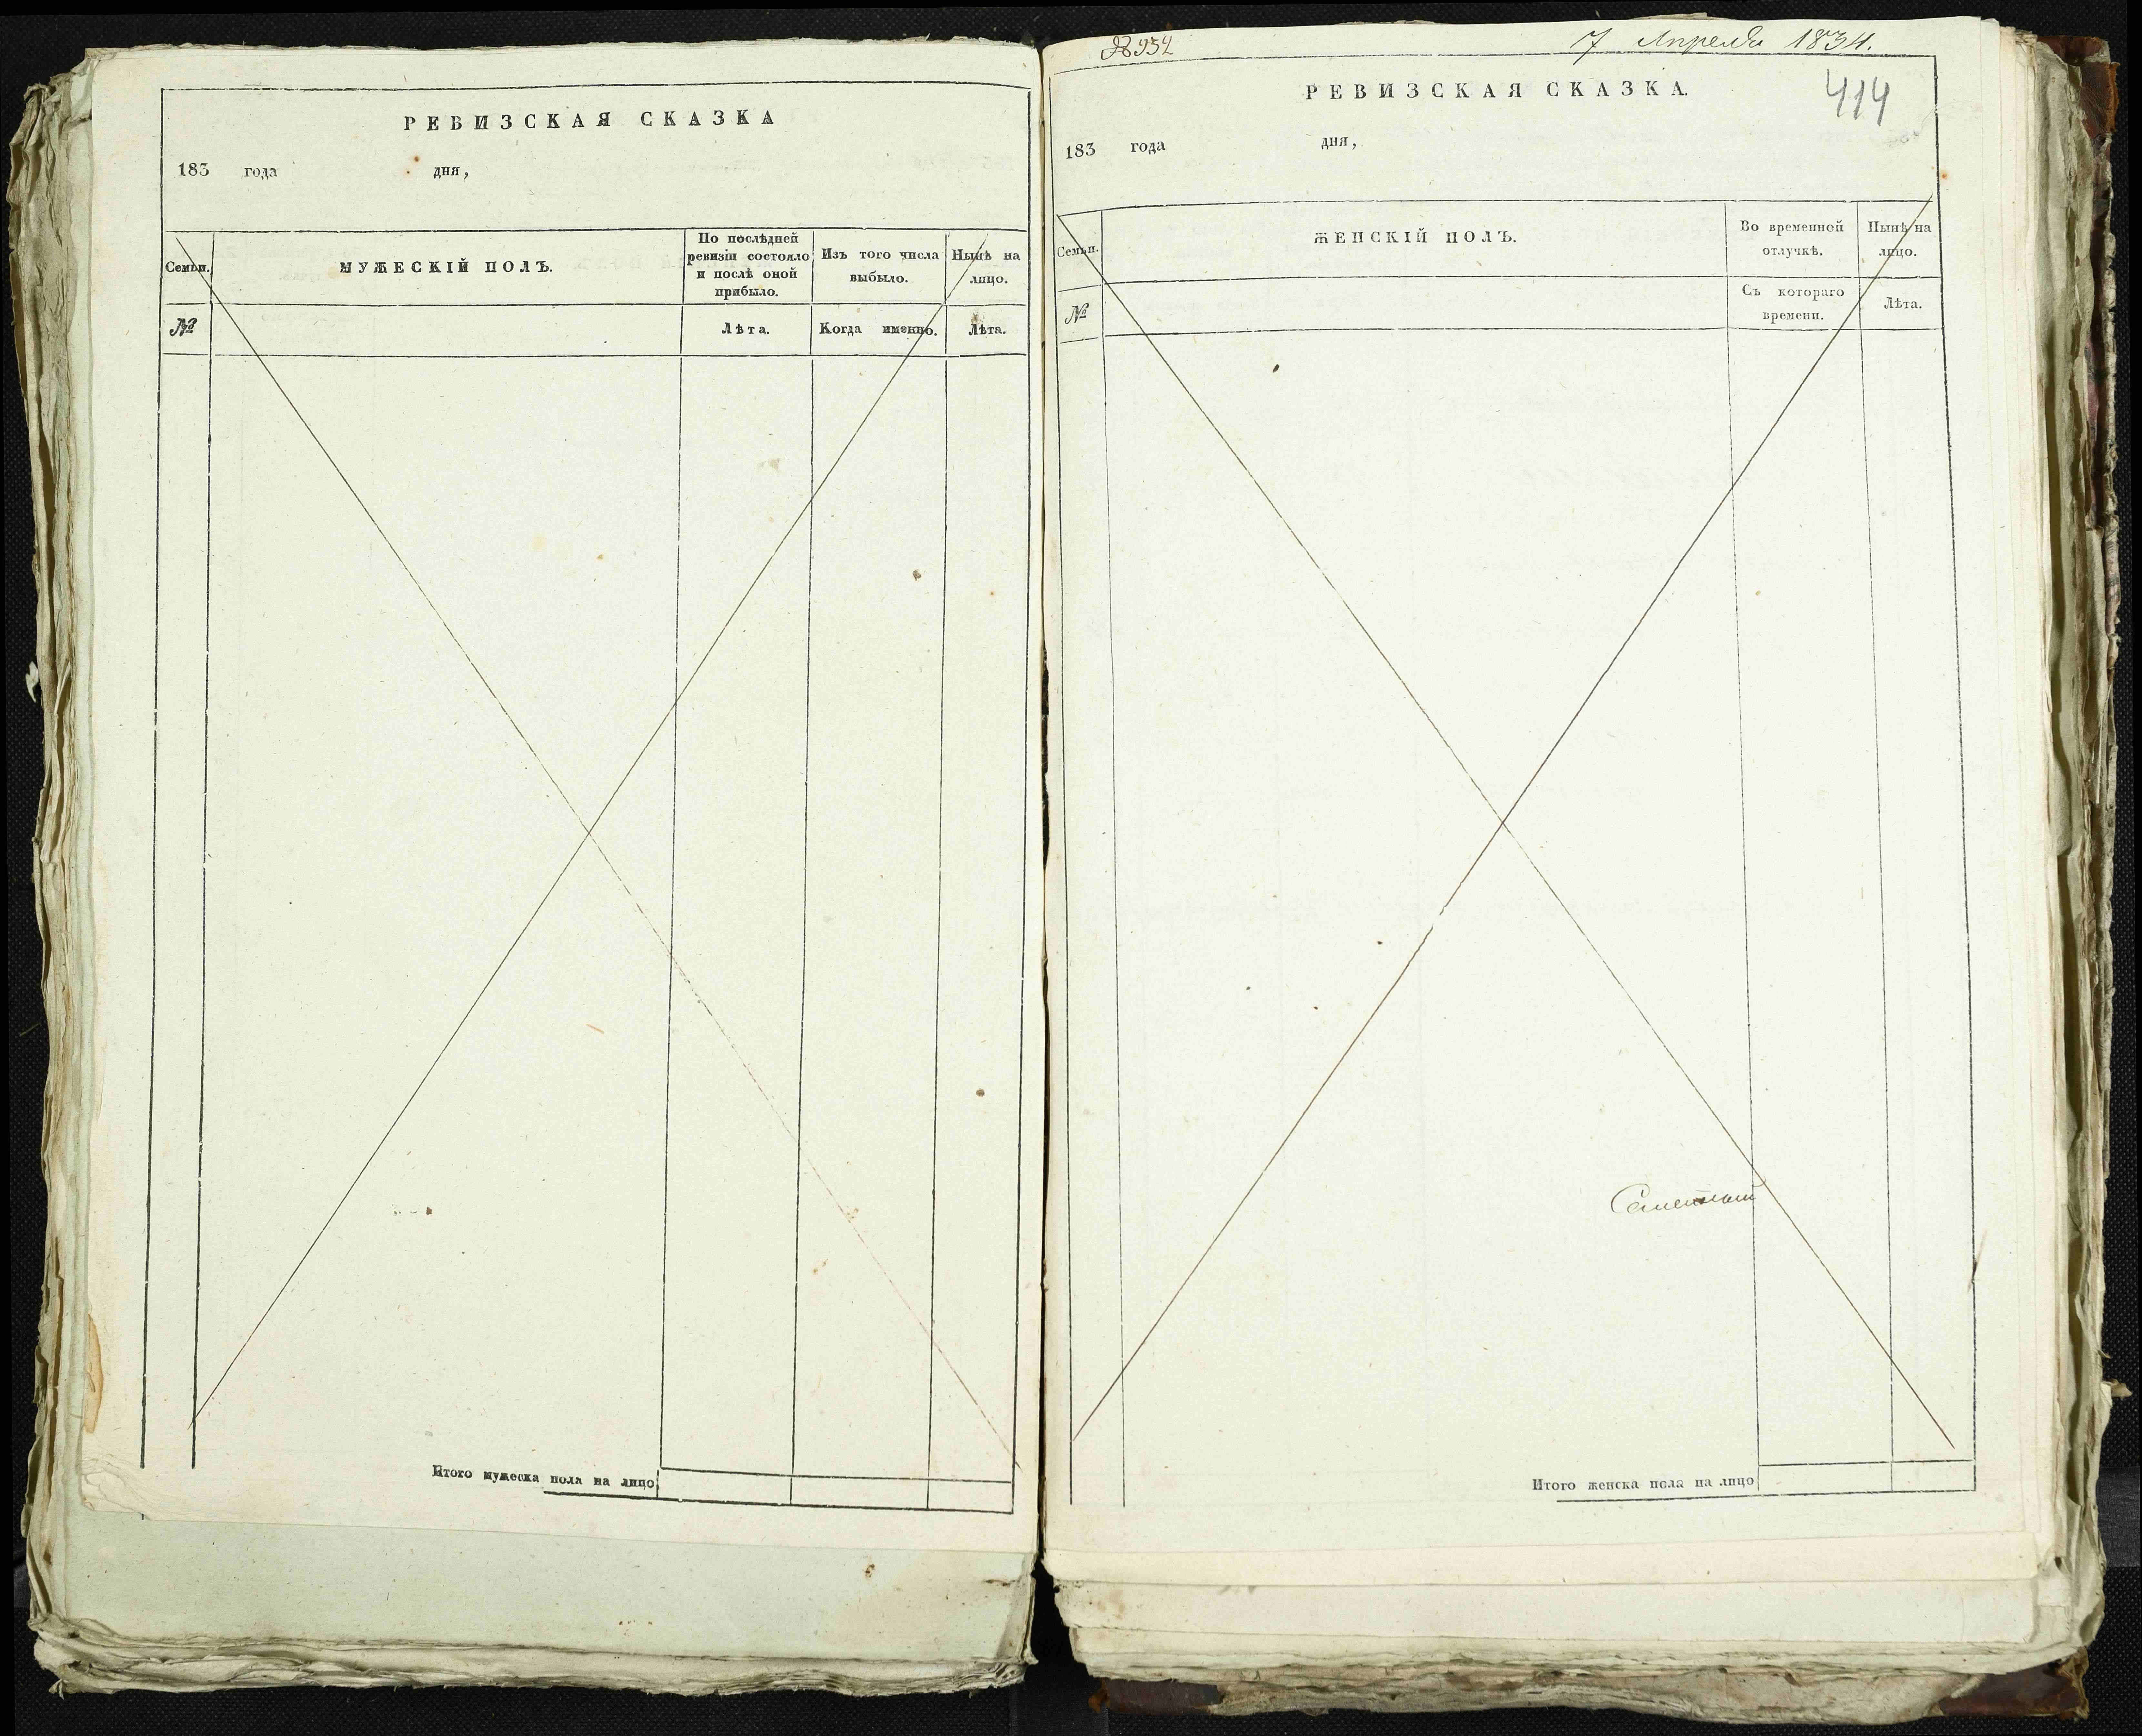 РЕВИЗСКАЯ СКАЗКА
183 года дня,
Семьи.
МУЖЕСКІЙ ПОЛЪ.
По послѣдней
ревизіи состояло
и послѣ оной
прибыло.
Изъ того числа
выбыло.
Нынѣ на
лицо.
№
Лѣта.
Когда именно.
Лѣта.
Итого мужеска пола на лицо
№ 952
7 Апреля 1834.
РЕВИЗСКАЯ СКАЗКА.
414
183 года дня,
Семьи.
ЖЕНСКІЙ ПОЛЪ.
Во временной
отлучкѣ.
Нынѣ на
лицо.
№
Съ котораго
времени.
Лѣта.
Итого женска пола на лицо